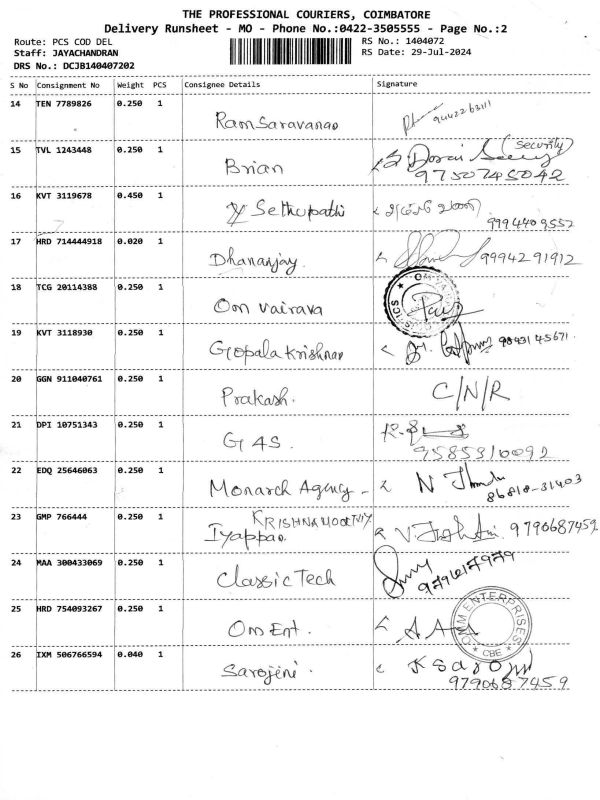 THE PROFESSIONAL COURIERS, COIMBATORE
Delivery Runsheet - MO - Phone No.:0422-3505555 - Page No.:2
Route: PCS COD DEL RS No.: 1404072
Staff: JAYACHANDRAN RS Date: 29-Jul-2024
DRS No.: DCJB140407202
S No Consignment No Weight PCS Consignee Details Signature
14 TEN 7789826 0.250 1 Ramsaravanan 9442263111
15 TVL 1243448 0.250 1 Brian (Security) 9750745042
16 KVT 3119678 0.450 1 Y Sethupathi 9994409552
17 HRD 714444918 0.020 1 Dhananjay. 9994291912
18 TCG 20114388 0.250 1 Om vairava
19 KVT 3118930 0.250 1 Gopala Krishnan 9843145671.
20 GGN 911040761 0.250 1 Prakash. C/N/R
21 DPI 10751343 0.250 1 G 4S. 9585310092
22 EDQ 25646063 0.250 1 Monarch Agency - N 86818-31403
23 GMP 766444 0.250 1 KRISHNAMOORTHY Iyappan 9790687459
24 MAA 300433069 0.250 1 Classic Tech
25 HRD 754093267 0.250 1 Om Ent. OMM ENTERPRISES CBE
26 IXM 506766594 0.040 1 Sarojini. K Saroj 9790687459